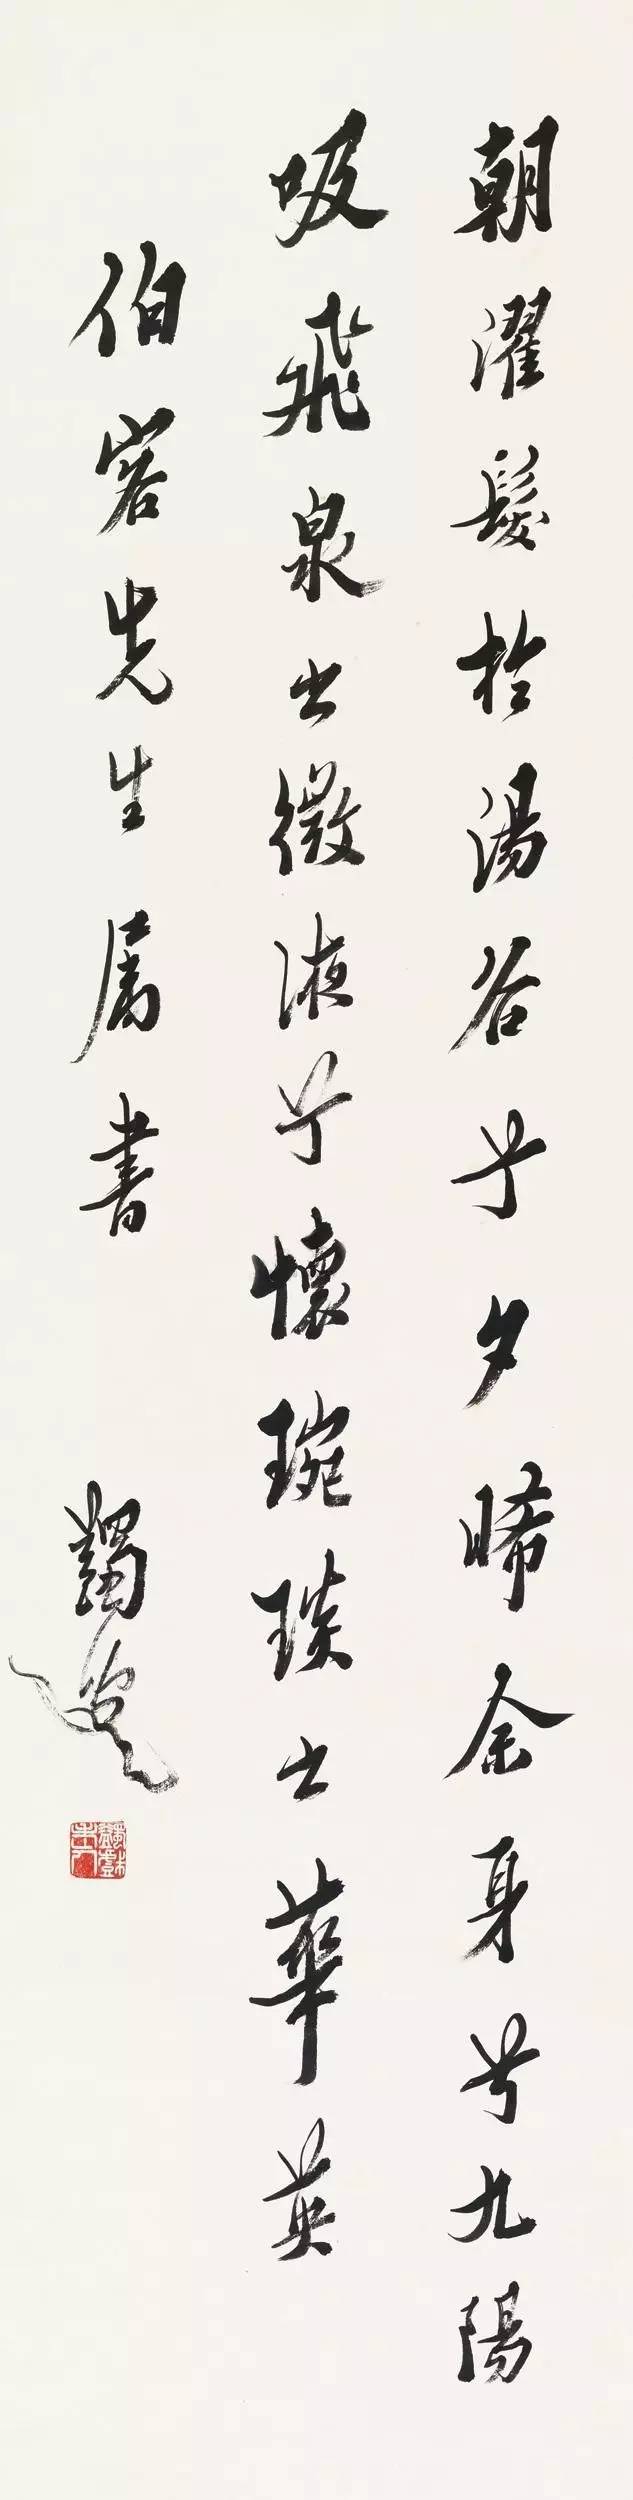 朝濯髮於湯谷兮夕晞余身兮九陽
吸飛泉之微液兮懷琬琰之華英
伯宏先生屬書
蠲叟